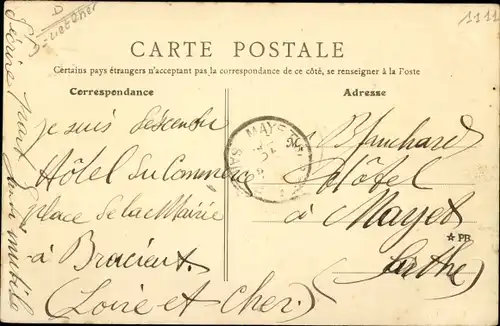 1111
CARTE POSTALE
Certains pays étrangers n'acceptant pas la correspondance de ce côté, se renseigner à la Poste
Correspondance
Adresse
je suis descendu
Hôtel du Commerce
place de la Mairie
à Bracieux.
(Loire et Cher.)
MAYET
Blanchard
Hôtel
à Mayet
(Sarthe)
PR
Ecrire
mais
inutile